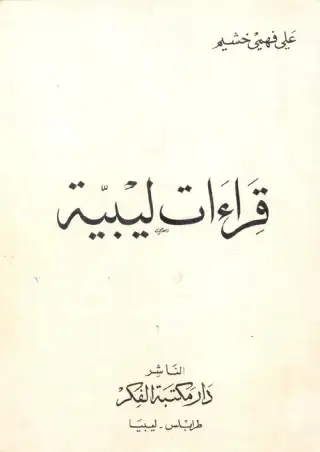 علي فهمي خشيم
قِراءَات ليْبيّة
الناشر
دار مكتبة الفكر
طرابلس - ليبيا